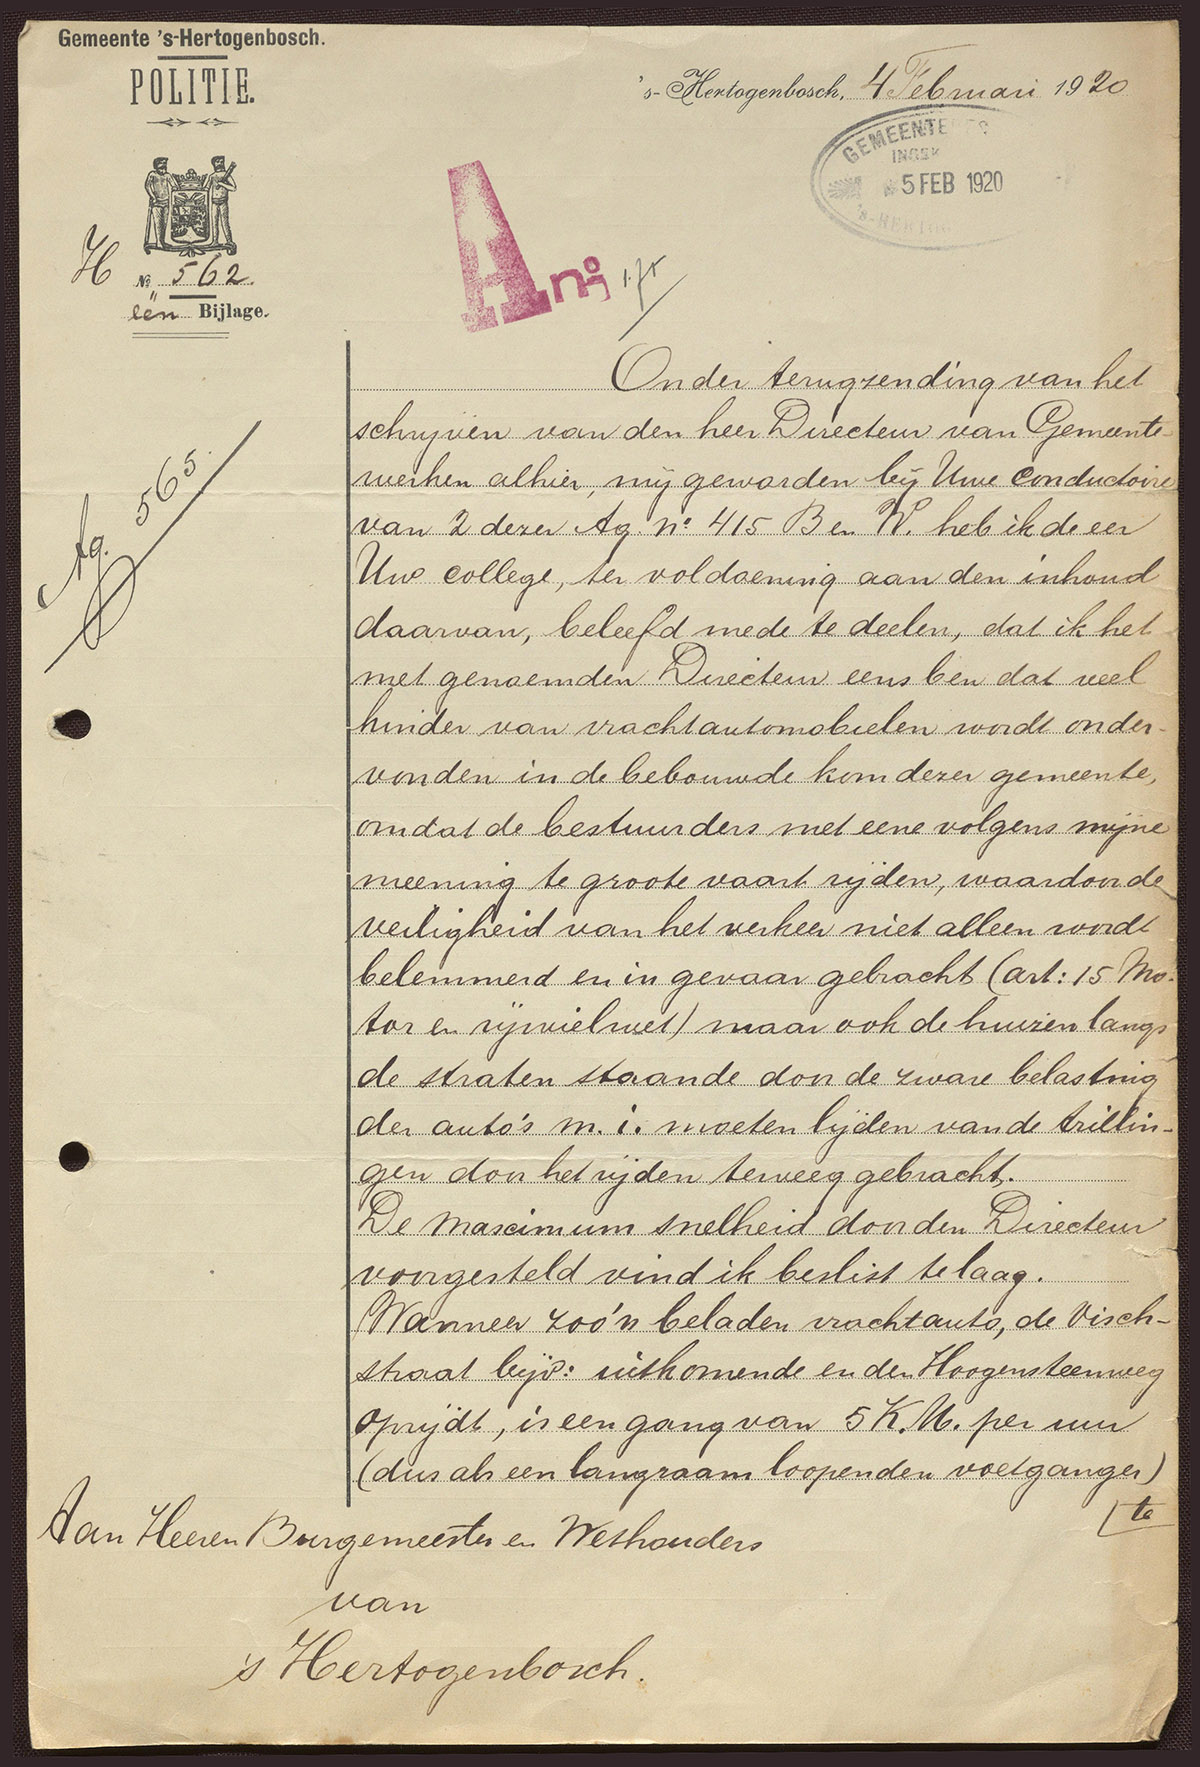 Gemeente 's-Hertogenbosch.
POLITIE.
's-Hertogenbosch, 4 Februari 1920
GEMEENTE
INGEK
5 FEB 1920
's-HERTOG
A no
H No 562.
één Bijlage.
Ag. 565.
Onder terugzending van het
schrijven van den heer Directeur van Gemeente-
werken alhier, mij geworden bij Uwe conductoire
van 2 dezer Ag. no 415 B en W. heb ik de eer
Uw college, ter voldoening aan den inhoud
daarvan, beleefd mede te deelen, dat ik het
met genoemden Directeur eens ben dat veel
hinder van vrachtautomobielen wordt onder-
vonden in de bebouwde kom dezer gemeente,
omdat de bestuurders met eene volgens mijne
meening te groote vaart rijden, waardoor de
veiligheid van het verkeer niet alleen wordt
belemmerd en in gevaar gebracht (art: 15 Mo-
tor en rijwielwet) maar ook de huizen langs
de straten staande door de zware belasting
der auto's m. i. moeten lijden van de trillin-
gen door het rijden teweeg gebracht.
De maximum snelheid door den Directeur
voorgesteld vind ik beslist te laag.
Wanneer zoo'n beladen vrachtauto, de Visch-
straat bijv: uitkomende en den Hoogensteenweg
oprijdt, is een gang van 5 K.M. per uur
(dus als een langzaam loopenden voetganger)
te
Aan Heeren Burgemeester en Wethouders
van
's Hertogenbosch.